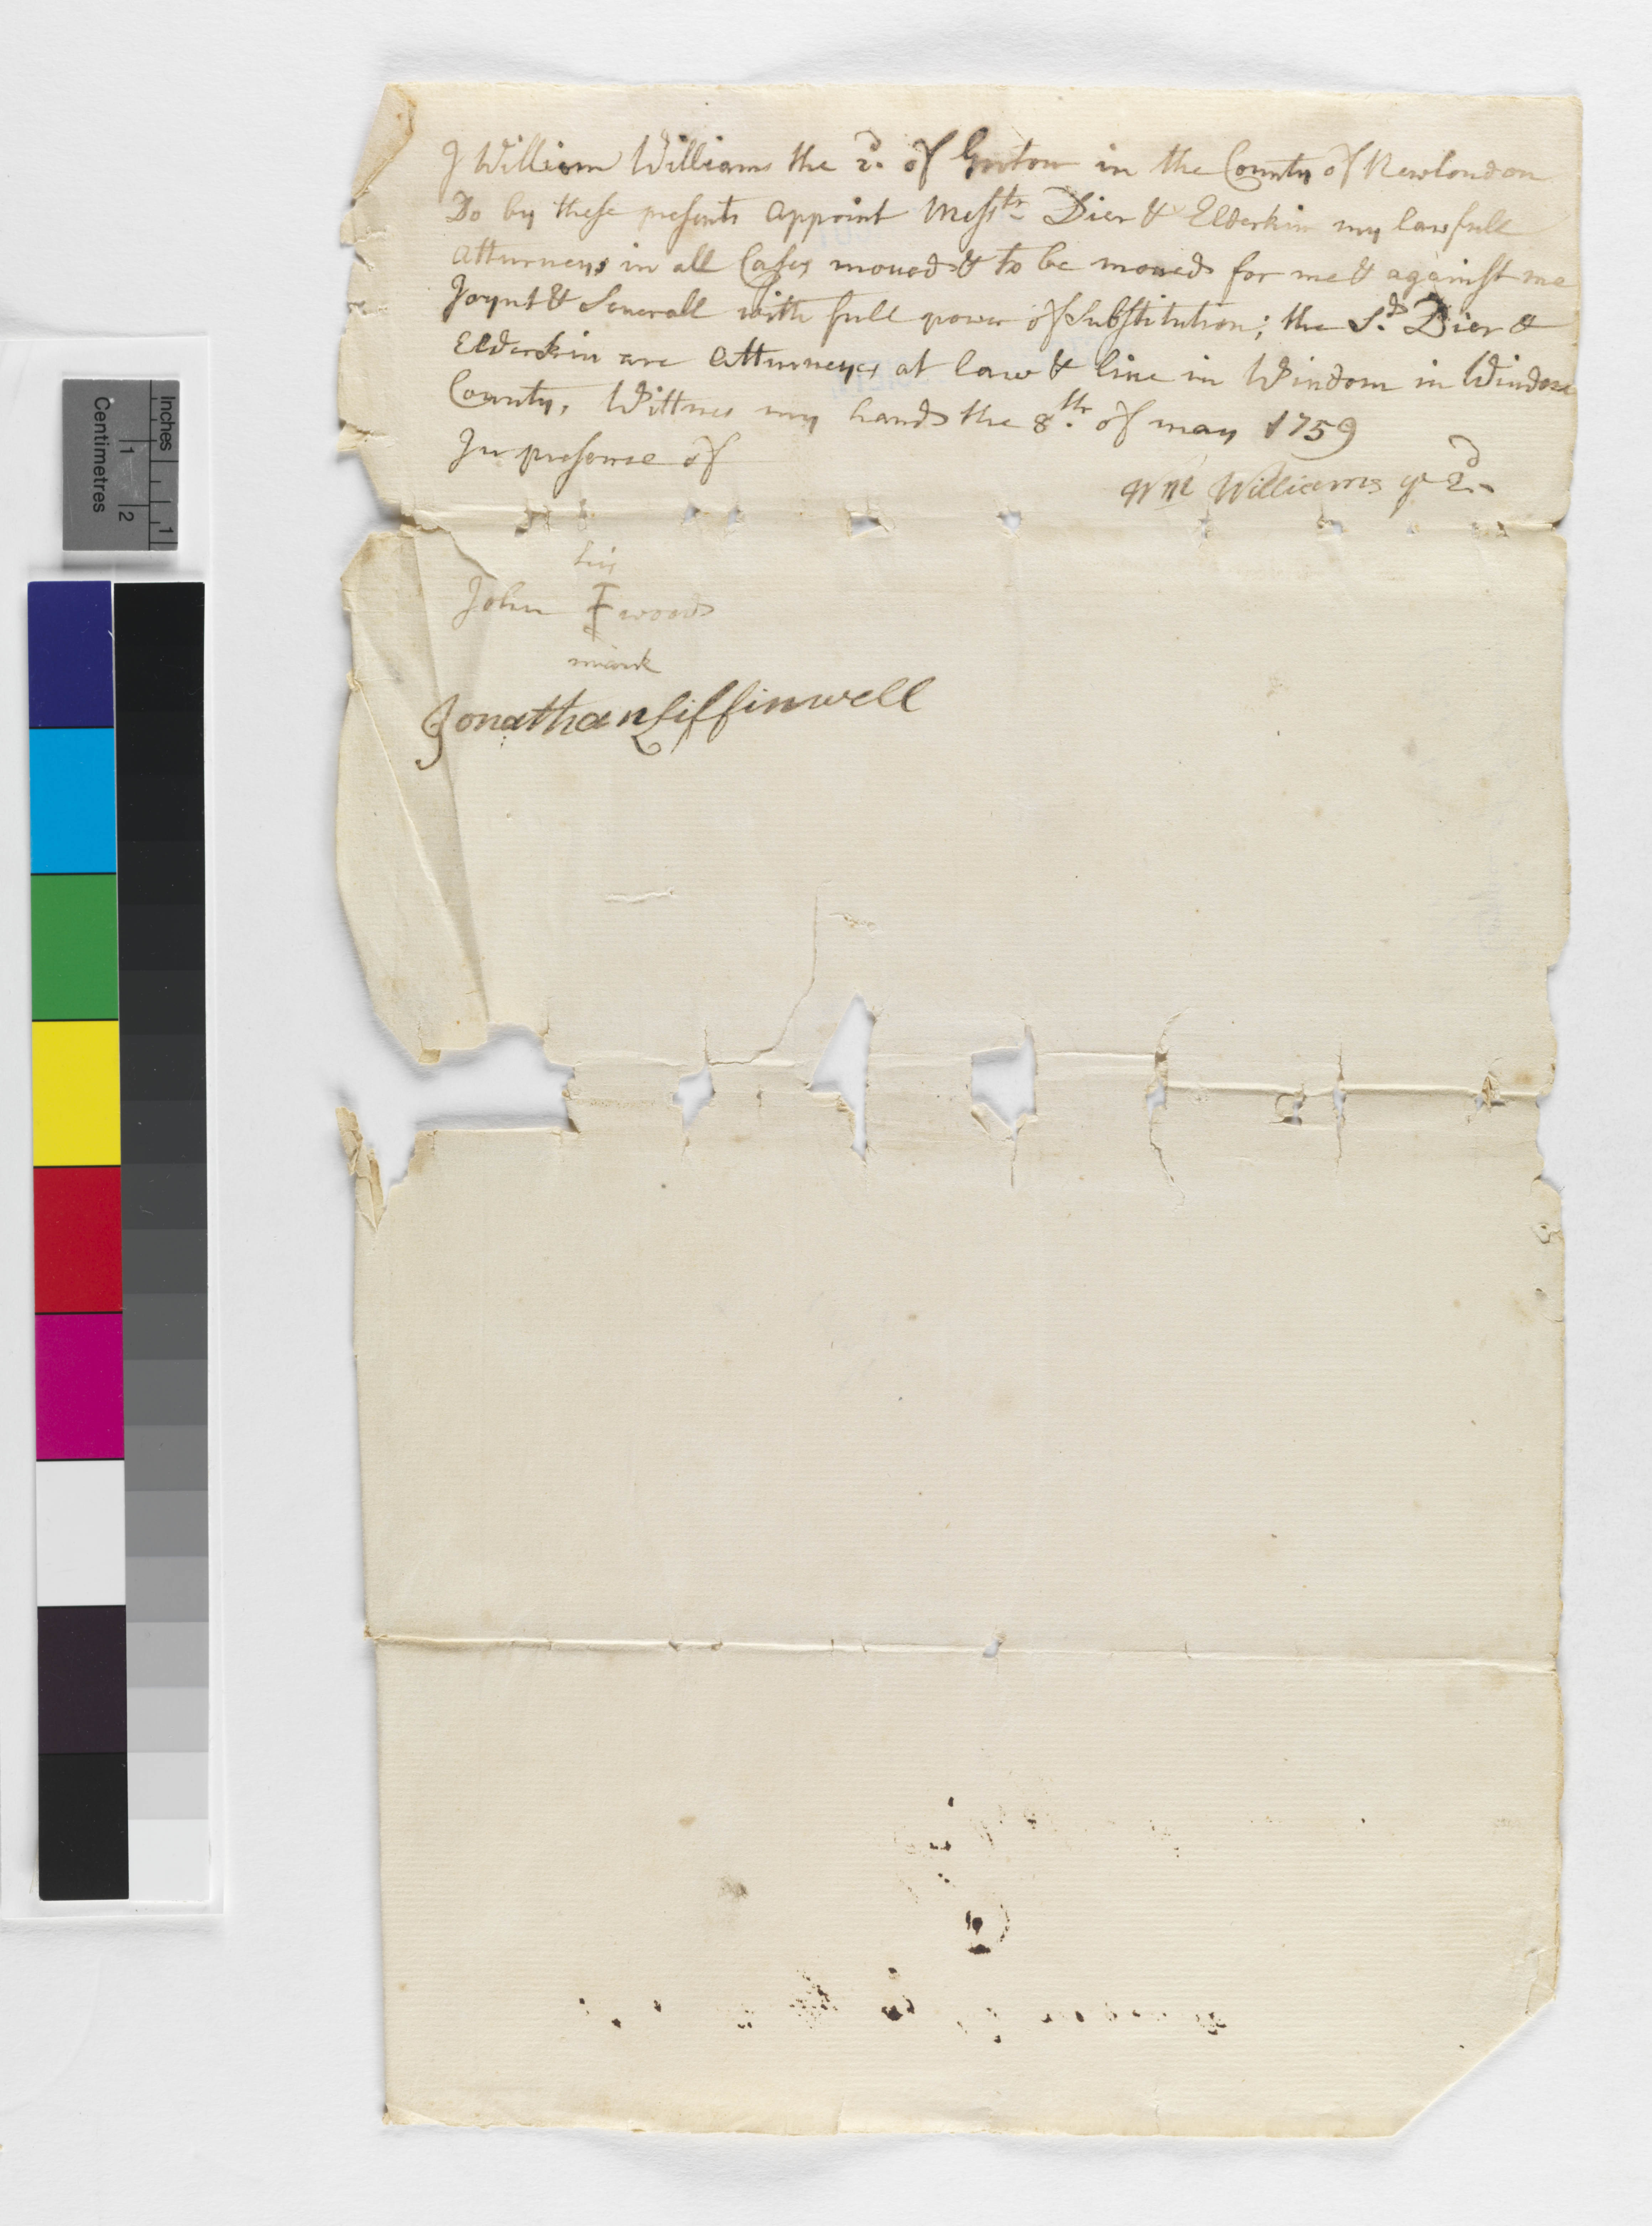 I William Williams the 2d. of Groton in the County of Newlondon
Do by these presents appoint Messrs Dier & Elderkin my lawfull
Atturneys in all Cases moued & to be moued for me & against me
Joynt & Seuerall with full power of Substitution; the Sd. Dier &
Elderkin are Atturneyes at law & liue in Windom in Windom
County. Wittnes my hand the 8th. of may 1759
In presence of
Wm Williams ye 2d.
his
John woods
mark
Jonathan Liffinwell
Inches
1
Centimetres
1
2